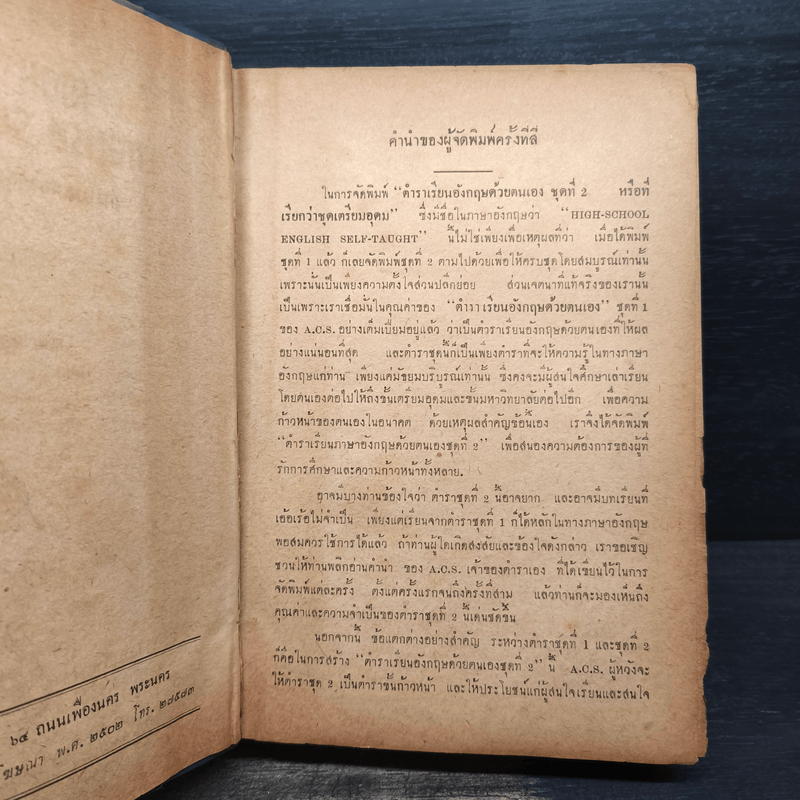 ๖๔ ถนนเฟื่องนคร พระนคร
โฆษณา พ.ศ. ๒๕๐๒ โทร. ๒๘๕๘๓
คำนำของผู้จัดพิมพ์ครั้งที่สี่
ในการจัดพิมพ์ “ตำราเรียนอังกฤษด้วยตนเอง ชุดที่ 2 หรือที่
เรียกว่าชุดเตรียมอุดม” ซึ่งมีชื่อในภาษาอังกฤษว่า “HIGH-SCHOOL
ENGLISH SELF-TAUGHT” นี้ไม่ใช่เพียงเพื่อเหตุผลที่ว่า เมื่อได้พิมพ์
ชุดที่ 1 แล้ว ก็เลยจัดพิมพ์ชุดที่ 2 ตามไปด้วยเพื่อให้ครบชุดโดยสมบูรณ์เท่านั้น
เพราะนั่นเป็นเพียงความตั้งใจส่วนปลีกย่อย ส่วนเจตนาที่แท้จริงของเรานั้น
เป็นเพราะเราเชื่อมั่นในคุณค่าของ “ตำราเรียนอังกฤษด้วยตนเอง” ชุดที่ 1
ของ A.C.S. อย่างเต็มเปี่ยมอยู่แล้ว ว่าเป็นตำราเรียนอังกฤษด้วยตนเองที่ให้ผล
อย่างแน่นอนที่สุด และตำราชุดนี้ก็เป็นเพียงตำราที่จะให้ความรู้ในทางภาษา
อังกฤษแก่ท่าน เพียงแค่มัธยมบริบูรณ์เท่านั้น ซึ่งคงจะมีผู้สนใจศึกษาเล่าเรียน
โดยตนเองต่อไปให้ถึงขั้นเตรียมอุดมและขั้นมหาวิทยาลัยต่อไปอีก เพื่อความ
ก้าวหน้าของตนเองในอนาคต ด้วยเหตุผลสำคัญข้อนี้เอง เราจึงได้จัดพิมพ์
“ตำราเรียนภาษาอังกฤษด้วยตนเองชุดที่ 2” เพื่อสนองความต้องการของผู้ที่
รักการศึกษาและความก้าวหน้าทั้งหลาย.
อาจมีบางท่านข้องใจว่า ตำราชุดที่ 2 นี้อาจยาก และอาจมีบทเรียนที่
เยิ่นเย้อไม่จำเป็น เพียงแต่เรียนจากตำราชุดที่ 1 ก็ได้หลักในทางภาษาอังกฤษ
พอสมควรใช้การได้แล้ว ถ้าท่านผู้ใดเกิดสงสัยและข้องใจดังกล่าว เราขอเชิญ
ชวนให้ท่านพลิกอ่านคำนำ ของ A.C.S. เจ้าของตำราเอง ที่ได้เขียนไว้ในการ
จัดพิมพ์แต่ละครั้ง ตั้งแต่ครั้งแรกจนถึงครั้งที่สาม แล้วท่านก็จะมองเห็นถึง
คุณค่าและความจำเป็นของตำราชุดที่ 2 นี้เด่นชัดขึ้น
นอกจากนี้ ข้อแตกต่างอย่างสำคัญ ระหว่างตำราชุดที่ 1 และชุดที่ 2
ก็คือในการสร้าง “ตำราเรียนอังกฤษด้วยตนเองชุดที่ 2” นี้ A.C.S. ผู้หวังจะ
ให้ตำราชุด 2 เป็นตำราขั้นก้าวหน้า และให้ประโยชน์แก่ผู้สนใจเรียนและสนใจ